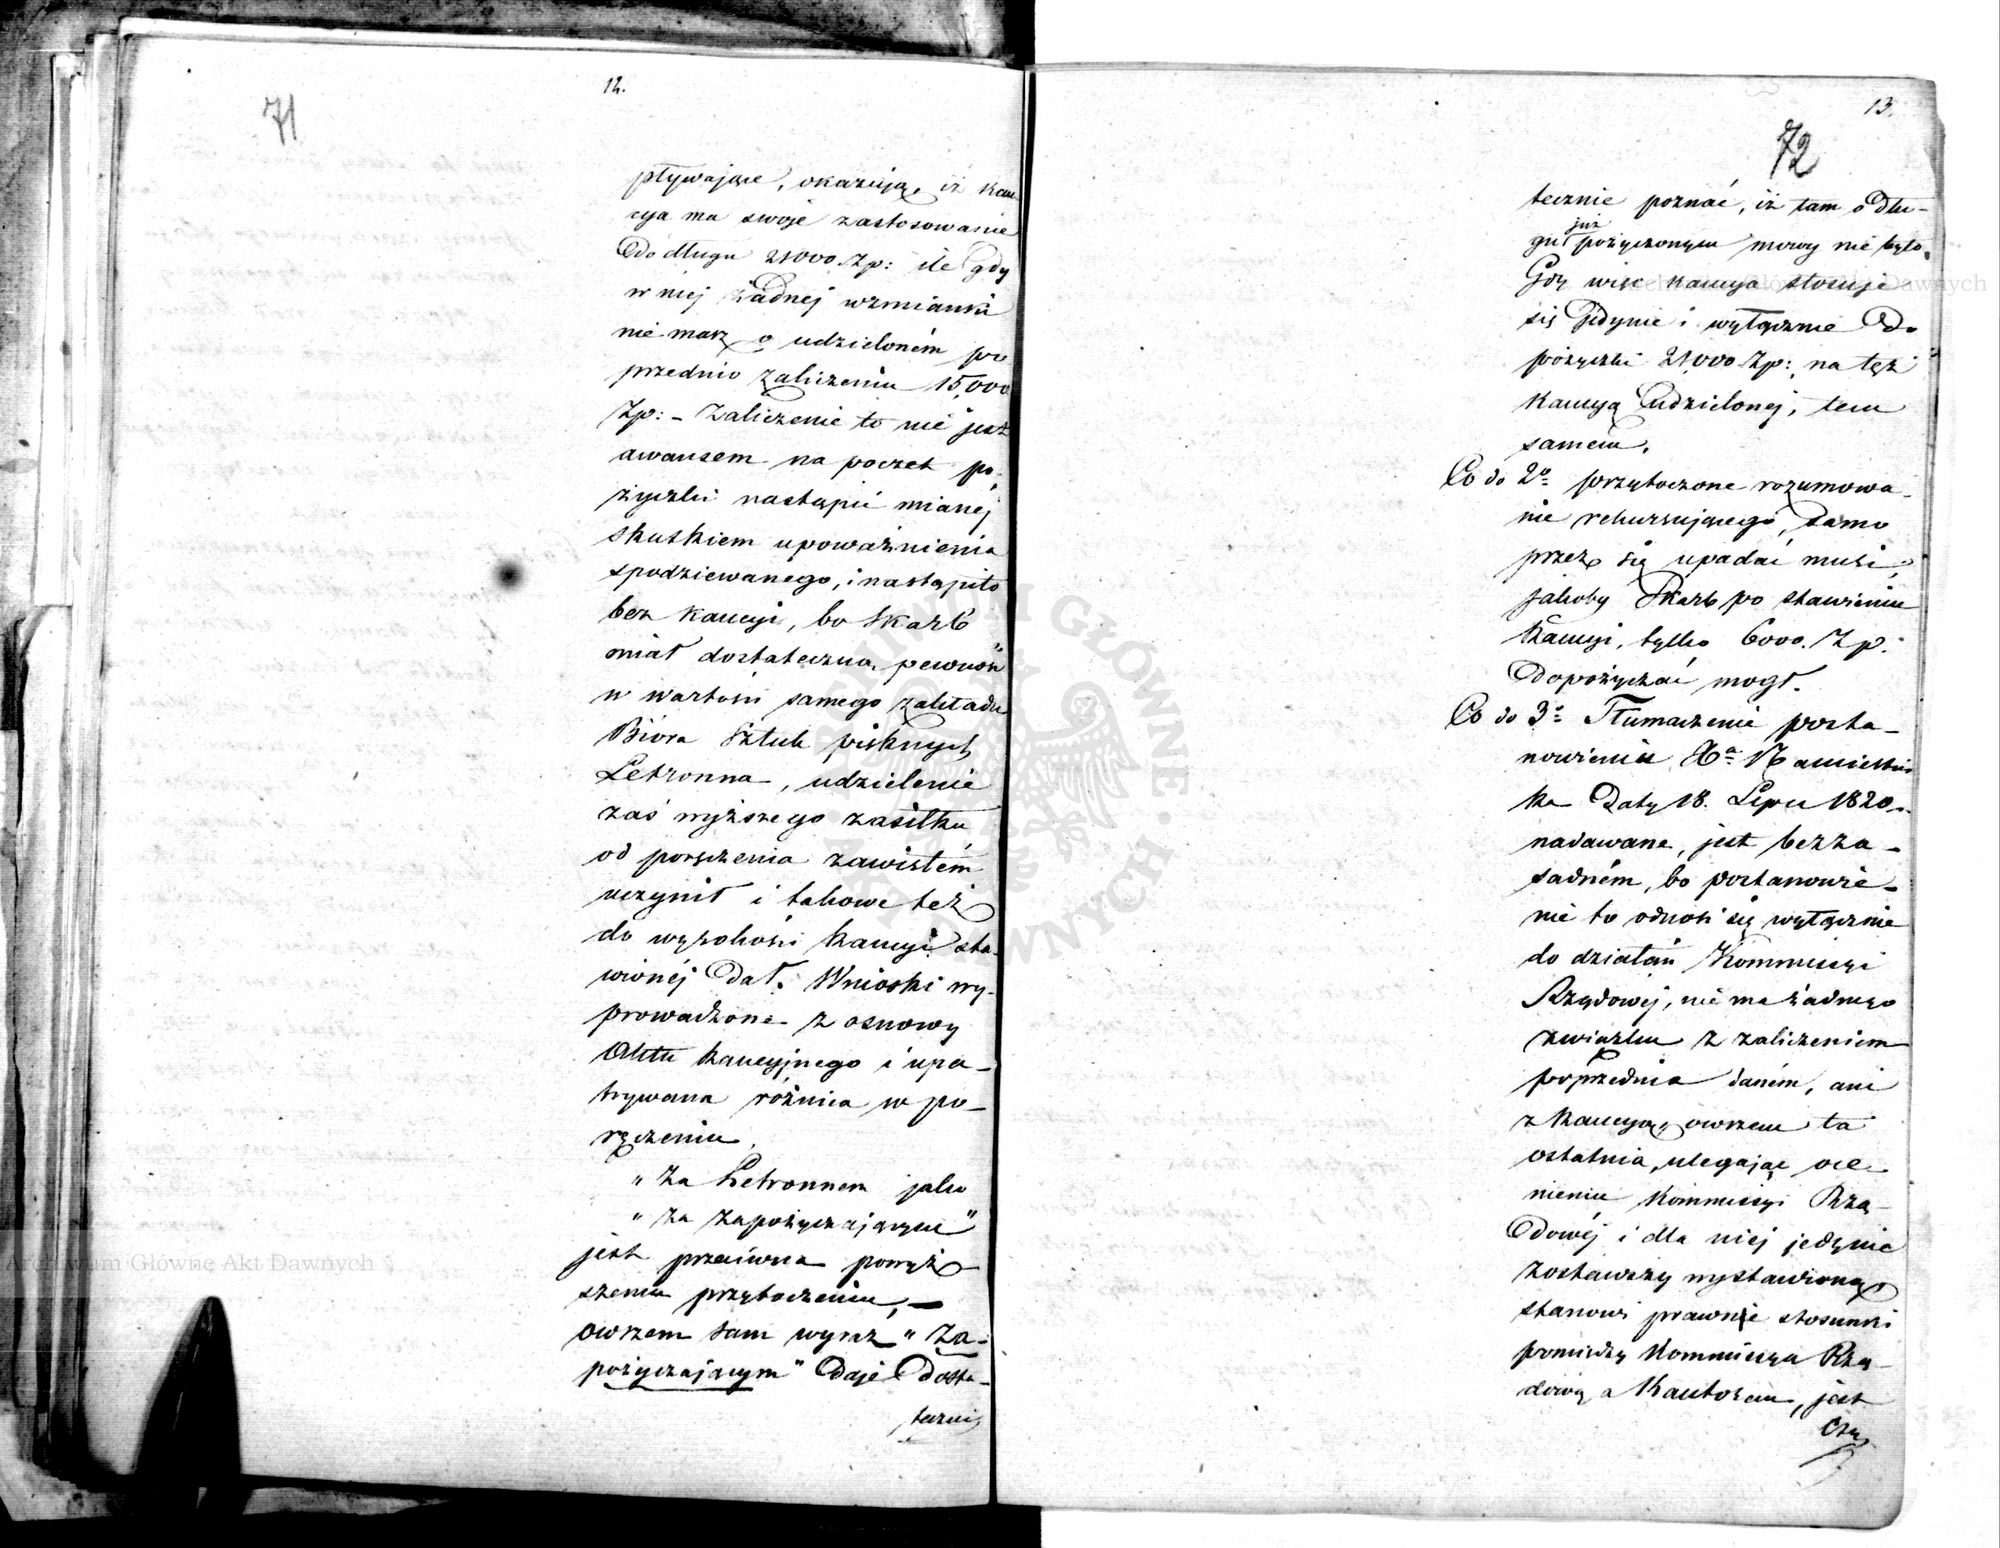 12.
71
pływające, okazują, iż kau
cya ma swoje zastosowanie
do długu 21000 Zp: ile gdy
w niej żadnej wzmianki
nie masz o udzieloném po
przednio zaliczeniu 15,000
Zp: – Zaliczenie to nie jest
awansem na poczet po
życzki nastąpić mianéj
skutkiem upoważnienia
spodziewanego, i nastąpiło
bez kaucyi, bo Skarb
miał dostateczną pewność
w wartości samego zakładu
Bióra Sztuk pięknych
Letronna, udzielenie
zaś wyższego zasiłku
od poręczenia zawisłém
uczynił i takowe też
do wysokości kaucyi sta-
wionéj dał. Wnioski wy-
prowadzone z osnowy
Aktu kaucyjnego i upa-
trywana różnica w po-
ręczeniu
„ za Letronnem jako
„ za zapożyczającym"
jest przeciwna powyż
szemu przytoczeniu, –
owszem sam wyraz „ Za-
pożyczającym" daje dosta-
tecznie
13.
72
tecznie poznać, iż tam o dłu-
już
gu pożyczonym mowy nie było.
Gdy więc kaucya stosuje
się jedynie i wyłącznie do
pożyczki 21,000 Zp: na też
kaucyą udzielonej, tem
samem.
Co do 2º przytoczone rozumowa-
nie rekursującego, samo
przez się upadać musi,
jakoby Skarb po stawieniu
kaucyi, tylko 6000. Zp:
dopożyczać mógł.
Co do 3º Tłumaczenie posta-
nowieniu Xª Namiestni
ka Daty 18. Lipca 1820.
nadawane, jest bezza-
sadném, bo postanowie-
nie to odnosi się wyłącznie
do działań Kommissyi
Rządowej, nie ma żadnego
związku z zaliczeniem
poprzednio daném, ani
z kaucyą, owszem ta
ostatnia, ulegając oce-
nieniu Kommissyi Rzą-
dowéj i dla niej jedynie
zostawszy wystawioną
stanowi prawnie stosunki
pomiędzy Kommissyą Rzą-
dową a Kautorem, jest